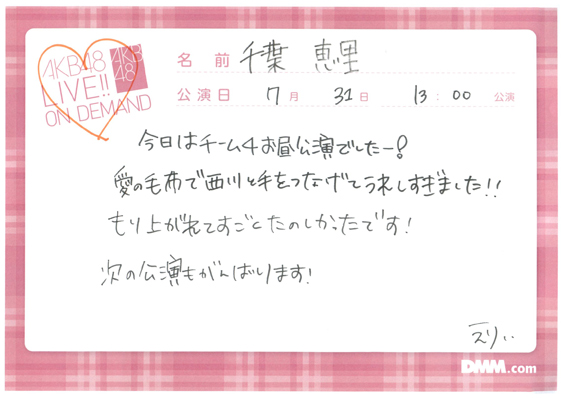 AKB48 LIVE!! ON DEMAND
AKB48
名前 千葉 恵里
公演日 7月 31日 13:00 公演
今日はチーム4お昼公演でしたー!
愛の毛布で西川と手をつなげてうれしすぎました!!
もり上がれてすごくたのしかったです!
次の公演もがんばります!
えりぃ
DMM.com